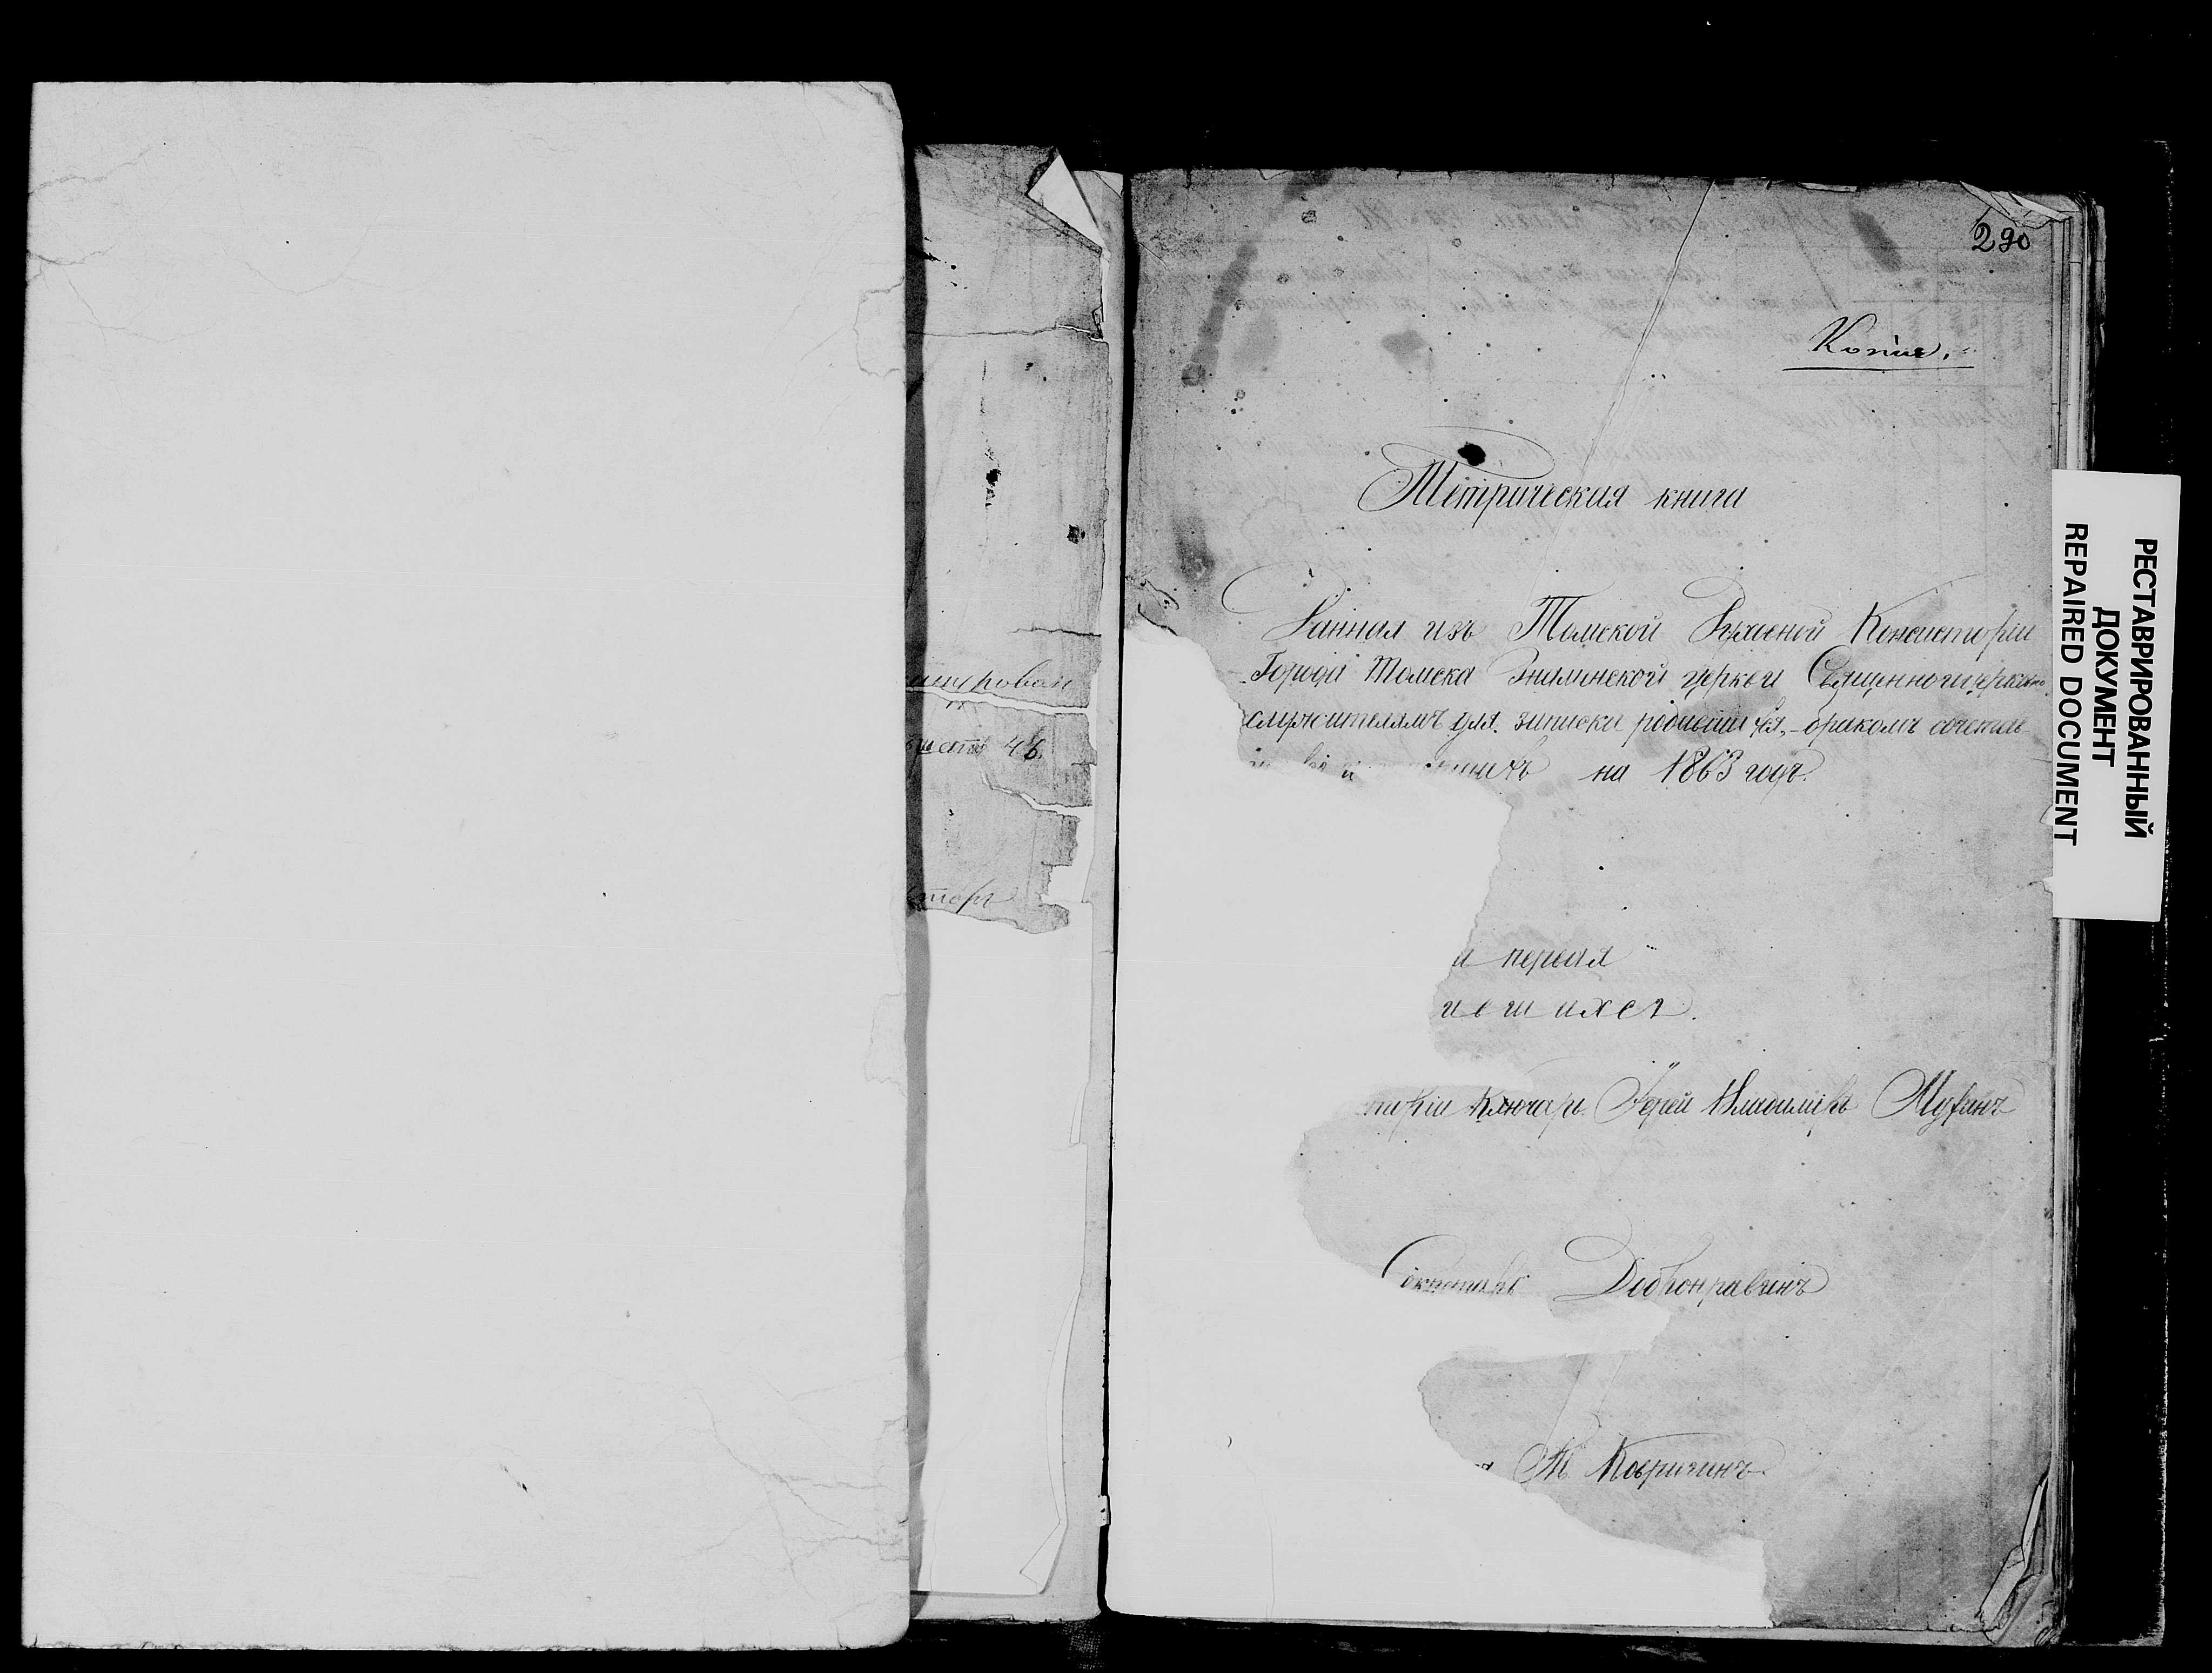 290
Копія.
Метрическая книга
Данная изъ Томской Духовной Консисторіи
Города Томска Знаминской церкви Священноицерковно
служителямъ для записки родившихся, бракомъ сочетав
на 1863 годъ.
я первая
ившихся.
торіи Ключарь Іерей Владиміръ Мухинъ
Секретарь Добронравинъ
М. Ковригинъ
шнурован
шестъ 46.
РЕСТАВРИРОВАННЫЙ
ДОКУМЕНТ
REPAIRED DOCUMENT